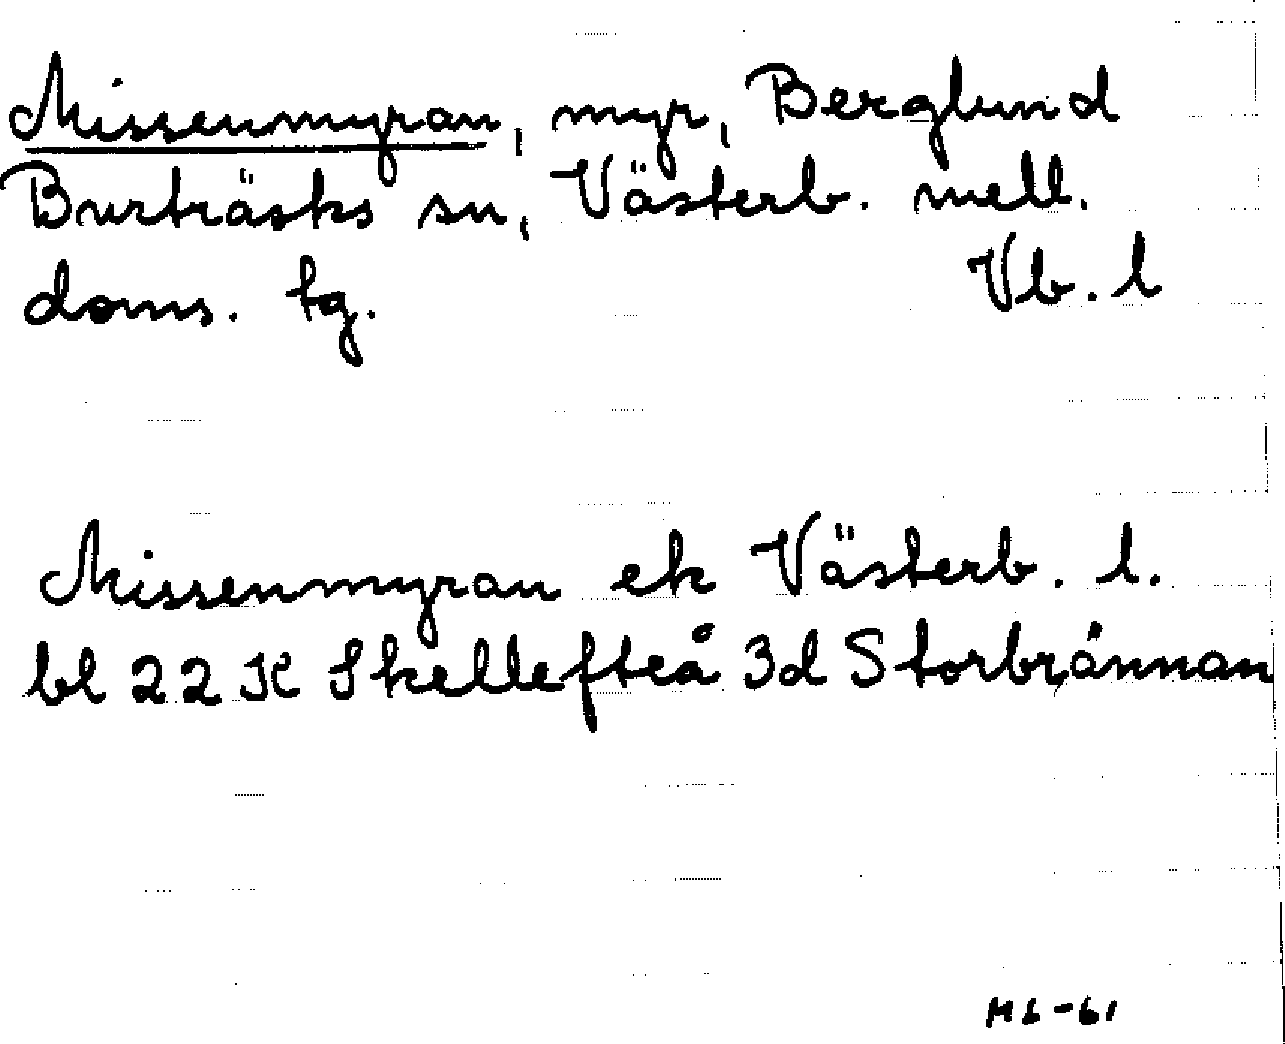 Missenmyran, myr, Berglund
Burträsks sn, Västerb. mell.
doms. tg. Vb. l
Missenmyran ek Västerb. l.
bl 22 K Skellefteå 3d Storbrännan
ML-61